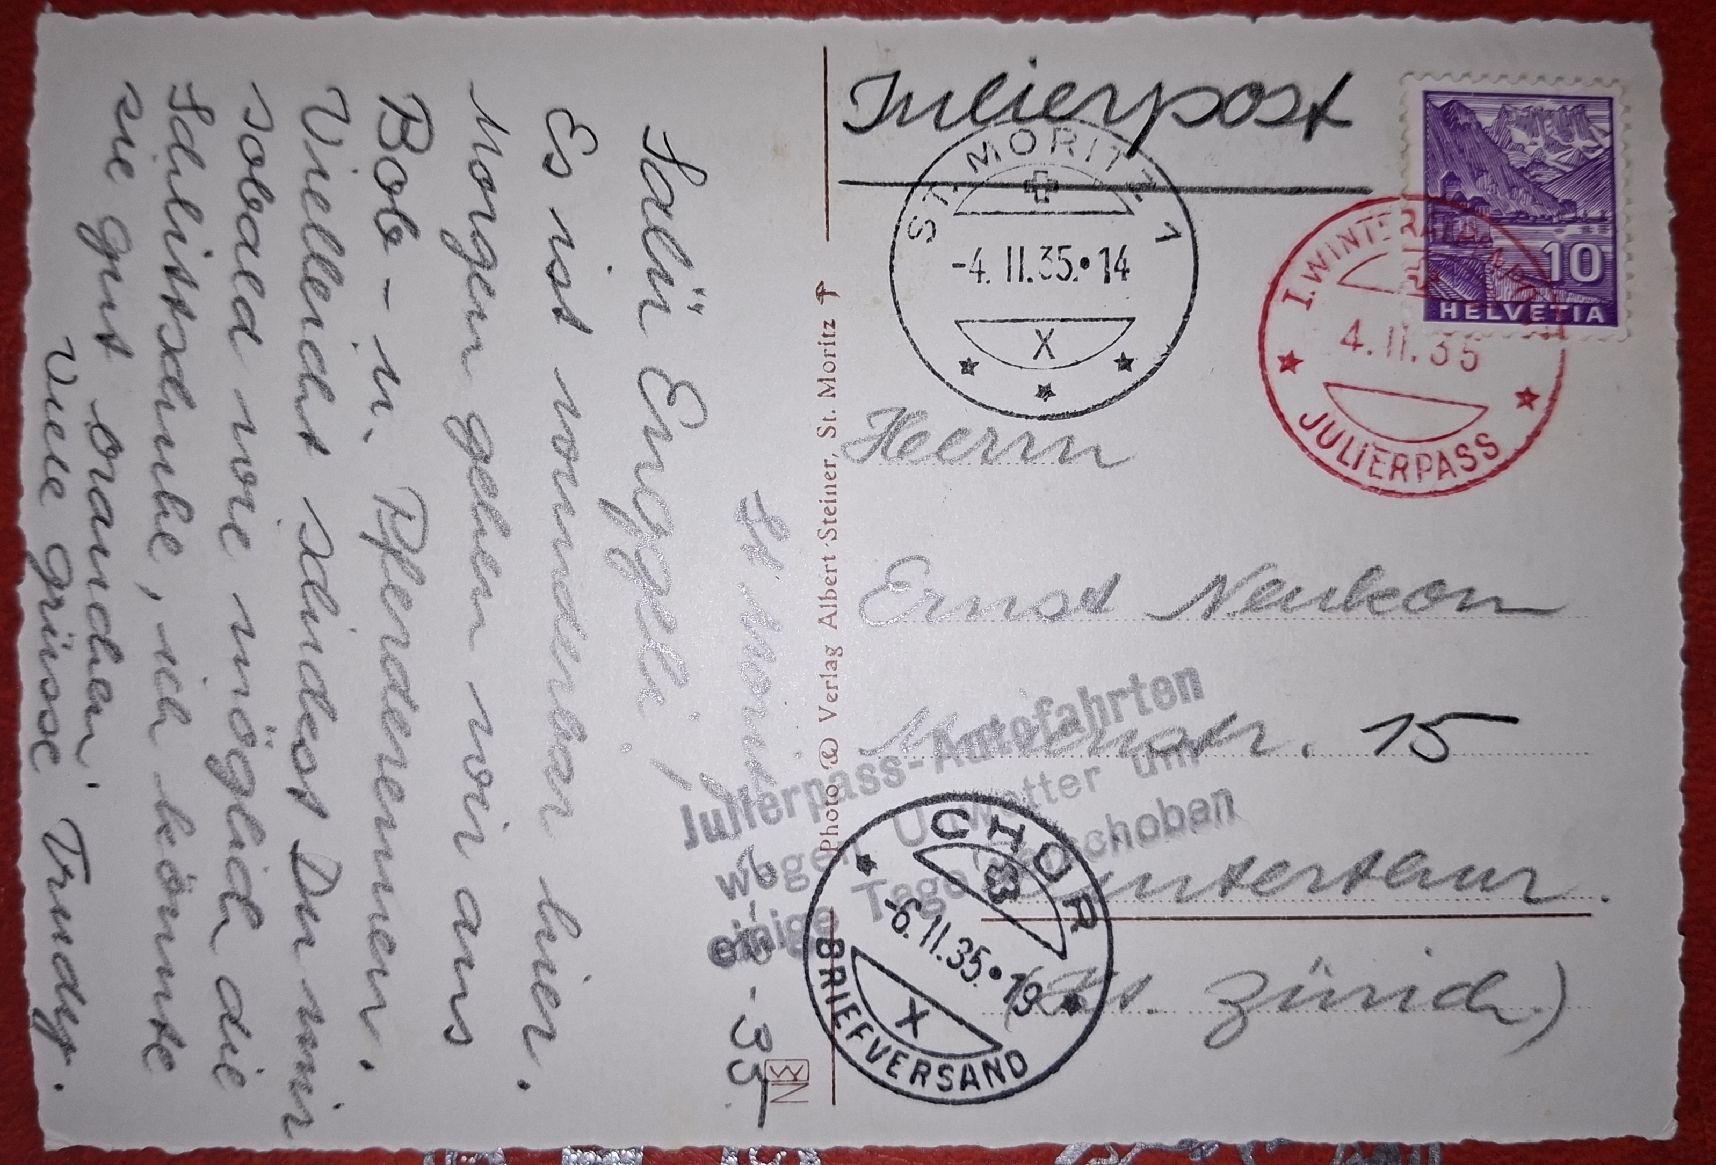 St. Moritz
Salü Enggeli!
Es ist wunderbar hier.
Morgen gehen wir ans
Bob - u. Pferderennen.
Vielleicht schickst Du mir
sobald wie möglich die
Schlittschuhe, ich könnte
sie gut brauchen.
Viele grüsse Trudy.
Photo & Verlag Albert Steiner, St. Moritz
Julierpost
ST. MORITZ 1
-4. II. 35. • 14
X
10
HELVETIA
4. II. 35
JULIERPASS
Herrn
Ernst Neukom
15
Julierpass-Autofahrten
wegen Unwetter um
einige Tage verschoben
Winterthur.
(Kt. Zürich)
CHUR
-6. II. 35. • 19
X
BRIEFVERSAND